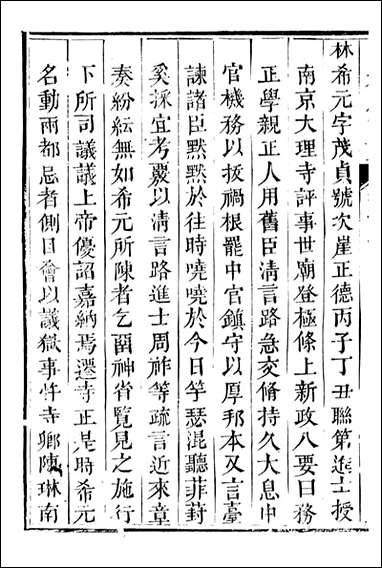 林希元字茂貞號次崖正德丙子丁丑聯第進士授
南京大理寺評事世廟登極條上新政八要曰務
正學親正人用舊臣清言路急交脩持久大息中
官機務以拔禍根罷中官鎮守以厚邦本又言臺
諫諸臣默默於往時嘵嘵於今日竽瑟混聽菲葑
奚採宜考覈以清言路進士周祚等疏言近來章
奏紛紜無如希元所陳者乞留神省覽見之施行
下所司議議上帝優詔嘉納焉遷寺正是時希元
名動兩都忌者側目會以議獄事忤寺卿陳琳南